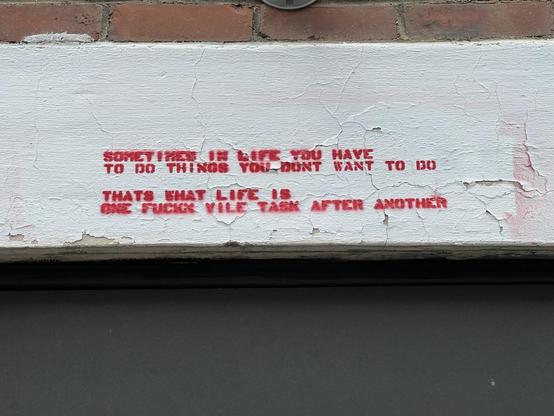 SOMETIMES IN LIFE YOU HAVE
TO DO THINGS YOU DONT WANT TO DO
THATS WHAT LIFE IS
ONE FUCKN VILE TASK AFTER ANOTHER